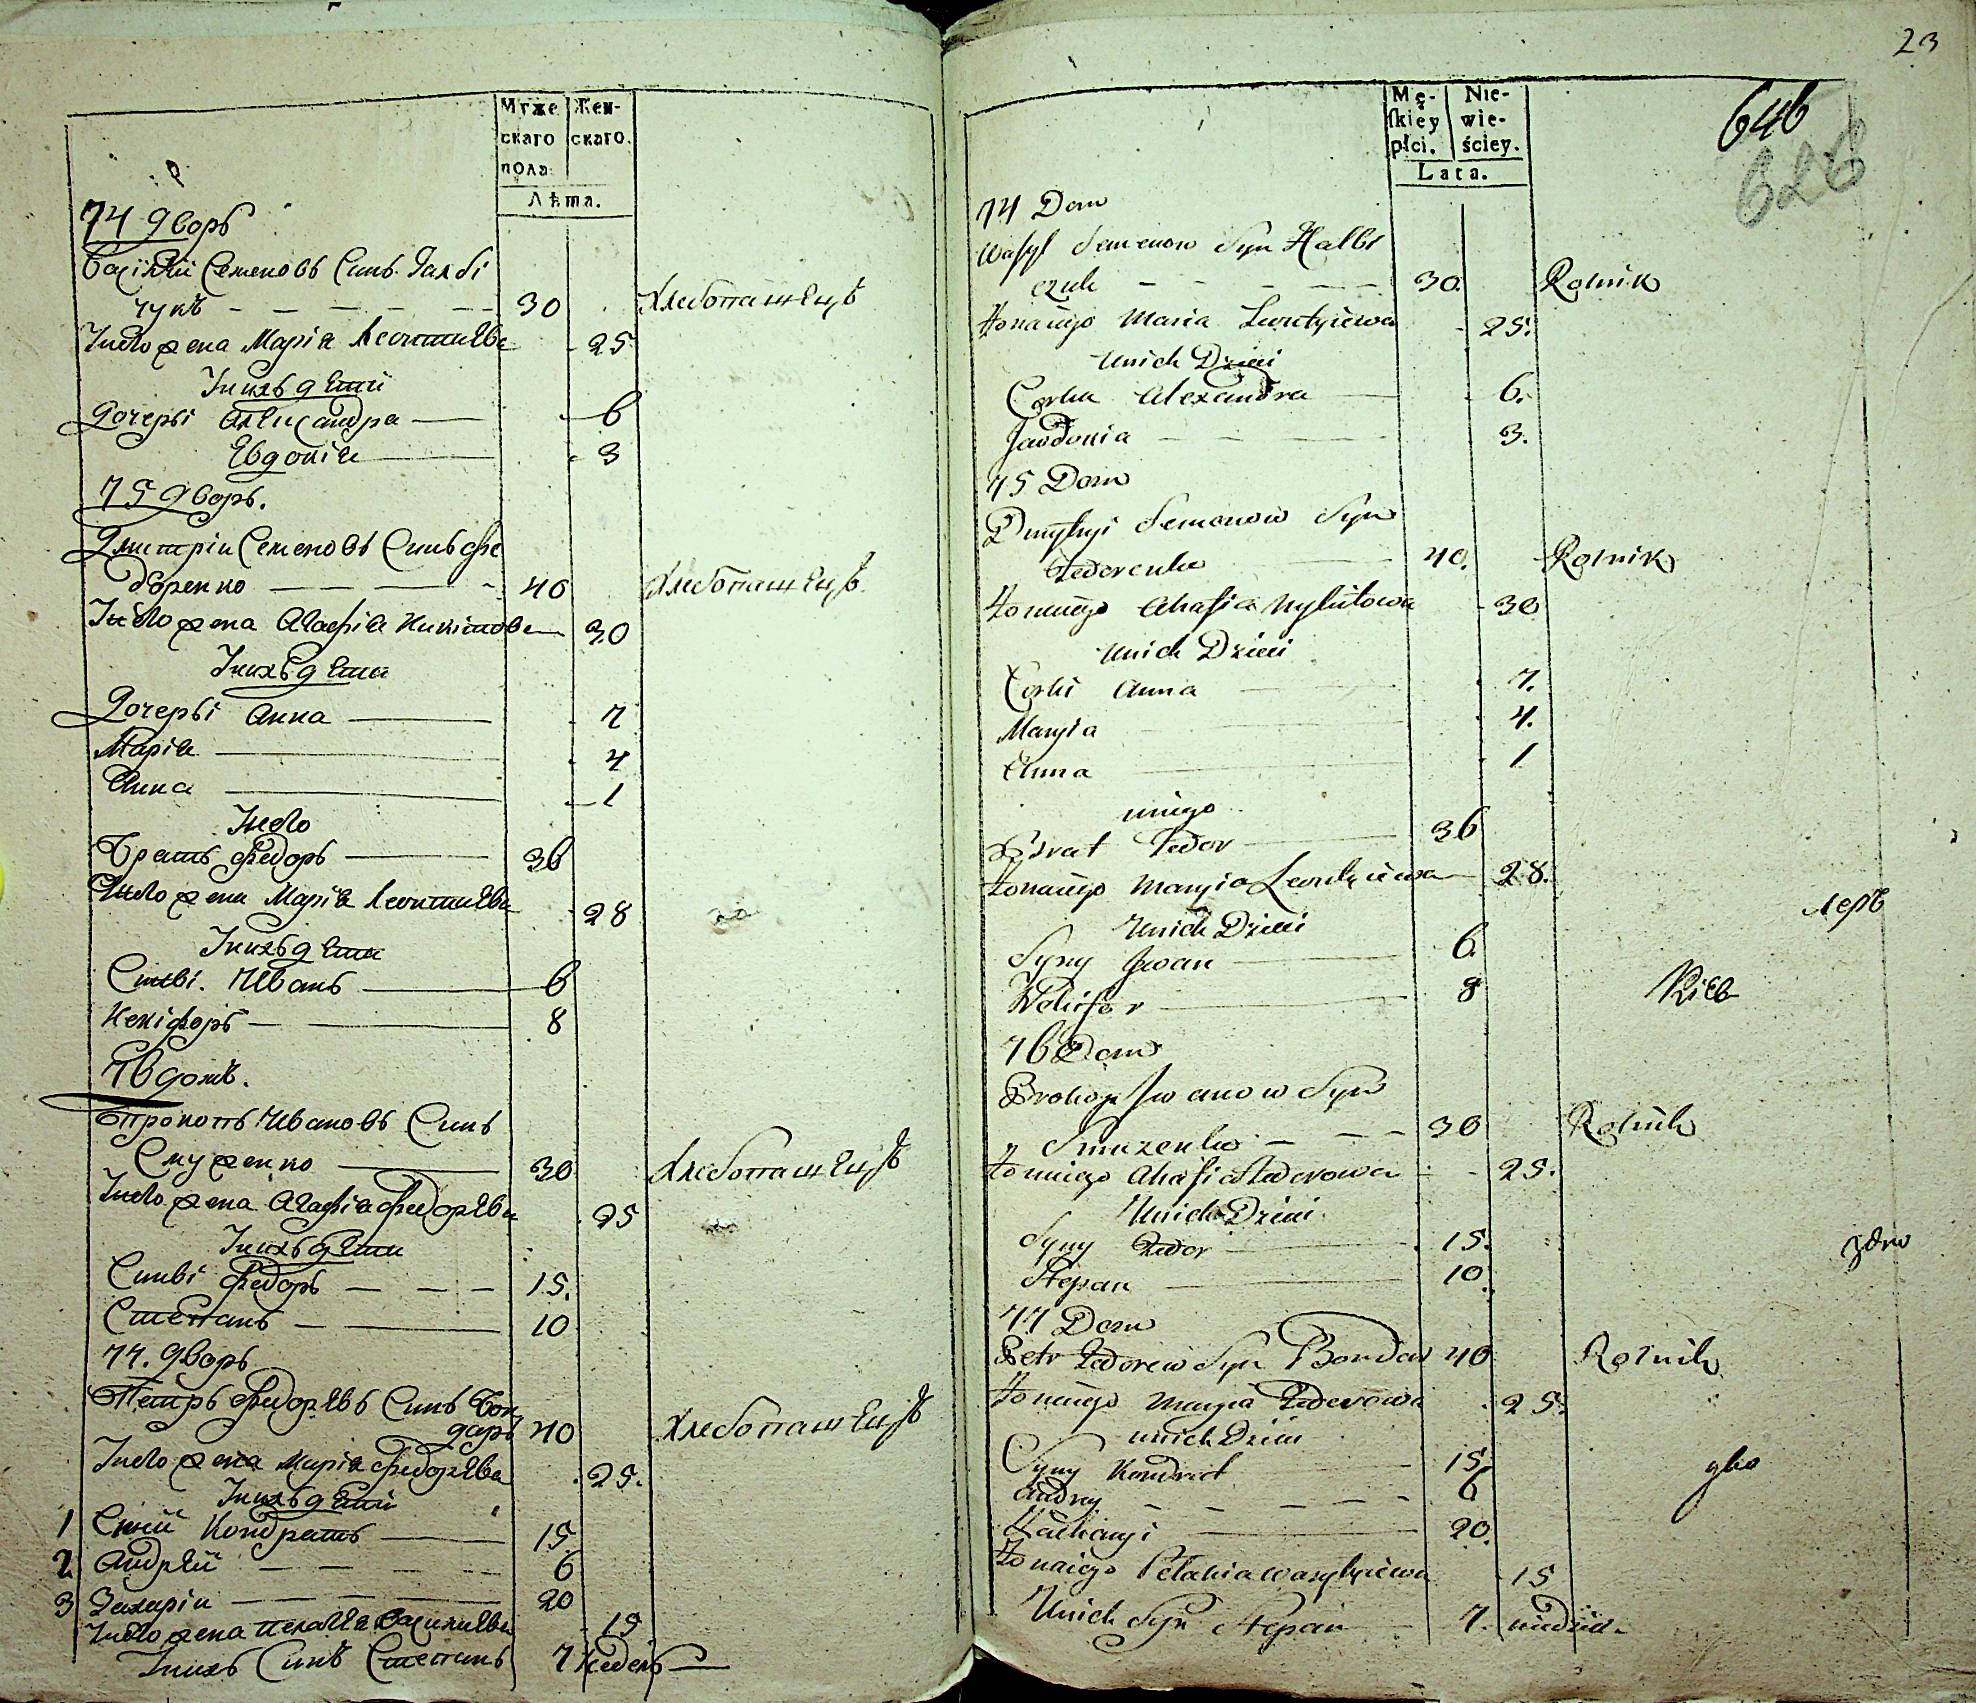 Муже
скаго
пола
Жен-
скаго.
Лѣта.
74 дворъ
Василій Семеновъ Синъ Галбі
чукъ 30 Хлебопашецъ
У него жена Марія Леонтиева 25
У нихъ дети
Дочері Александра 6
Евдокія 3
75 дворъ.
Дмитрій Семеновъ Синъ Фе
доренко 40 Хлебопашецъ
У него жена Агафія Никитова 30
У нихъ дети
Дочері Анна 7
Марія 4
Анна 1
У него
Братъ Федоръ 36
У него жена Марія Леонтиева 28
У нихъ дети
Сыві. Иванъ 6
Некіфоръ 8
76 домъ.
Прокопъ Ивановъ Синъ
Смуженко 30 Хлебопашецъ
У него жена Агафіа Федорева 25
У нихъ дети
Синві Федоръ 15.
Степанъ 10
77. дворъ
Петръ Федоревъ Синъ Бон
даръ 40 Хлебопашецъ
У него жена Марія Федорева 25.
У нихъ дети
1 Сині Кондратъ 15
2 Андрей 6
3 Захарій 20
У него жена Пелагея Василиева 15
У нихъ Синъ Степанъ 7 недель
23
646
626
Mę-
skiey
płci.
Nie-
wie-
ściey.
Lata.
74 Dom
Wasyl Semenow Syn Halbi
czuk 30. Rolnik
Żona iego Maria Leontyiewa 25.
U nich Dzieci
Corka Alexandra 6.
Jawdokia 3.
75 Dom
Dmytryi Semenow Syn
Fedorenko 40. Rolnik
Żona iego Ahafia Nykitowa 30
U nich Dzieci
Corki Anna 7.
Maryia 4.
Anna 1
u niego
Brat Fedor 36
Żona iego Maryia Leontyiewa 28.
U nich Dzieci
Syny Iwan 6.
Nekifor 8
76 Dom
Prokop Iwanow Syn
Smuzenko 30 Rolnik
Żona iego Ahafia Fedorowa 25.
U nich Dzieci
Syny Fedor 15.
Stepan 10
77 Dom
Petr Fedorow Syn Bondar 40 Rolnik
Żona iego Maryia Fedorowa 25.
u nich Dzieci
Syny Kondrat 15.
Andrey 6
Zacharyi 20.
Żona iego Pelahia Wasylyiewa 15
U nich Syn Stepan 7. niedziel.